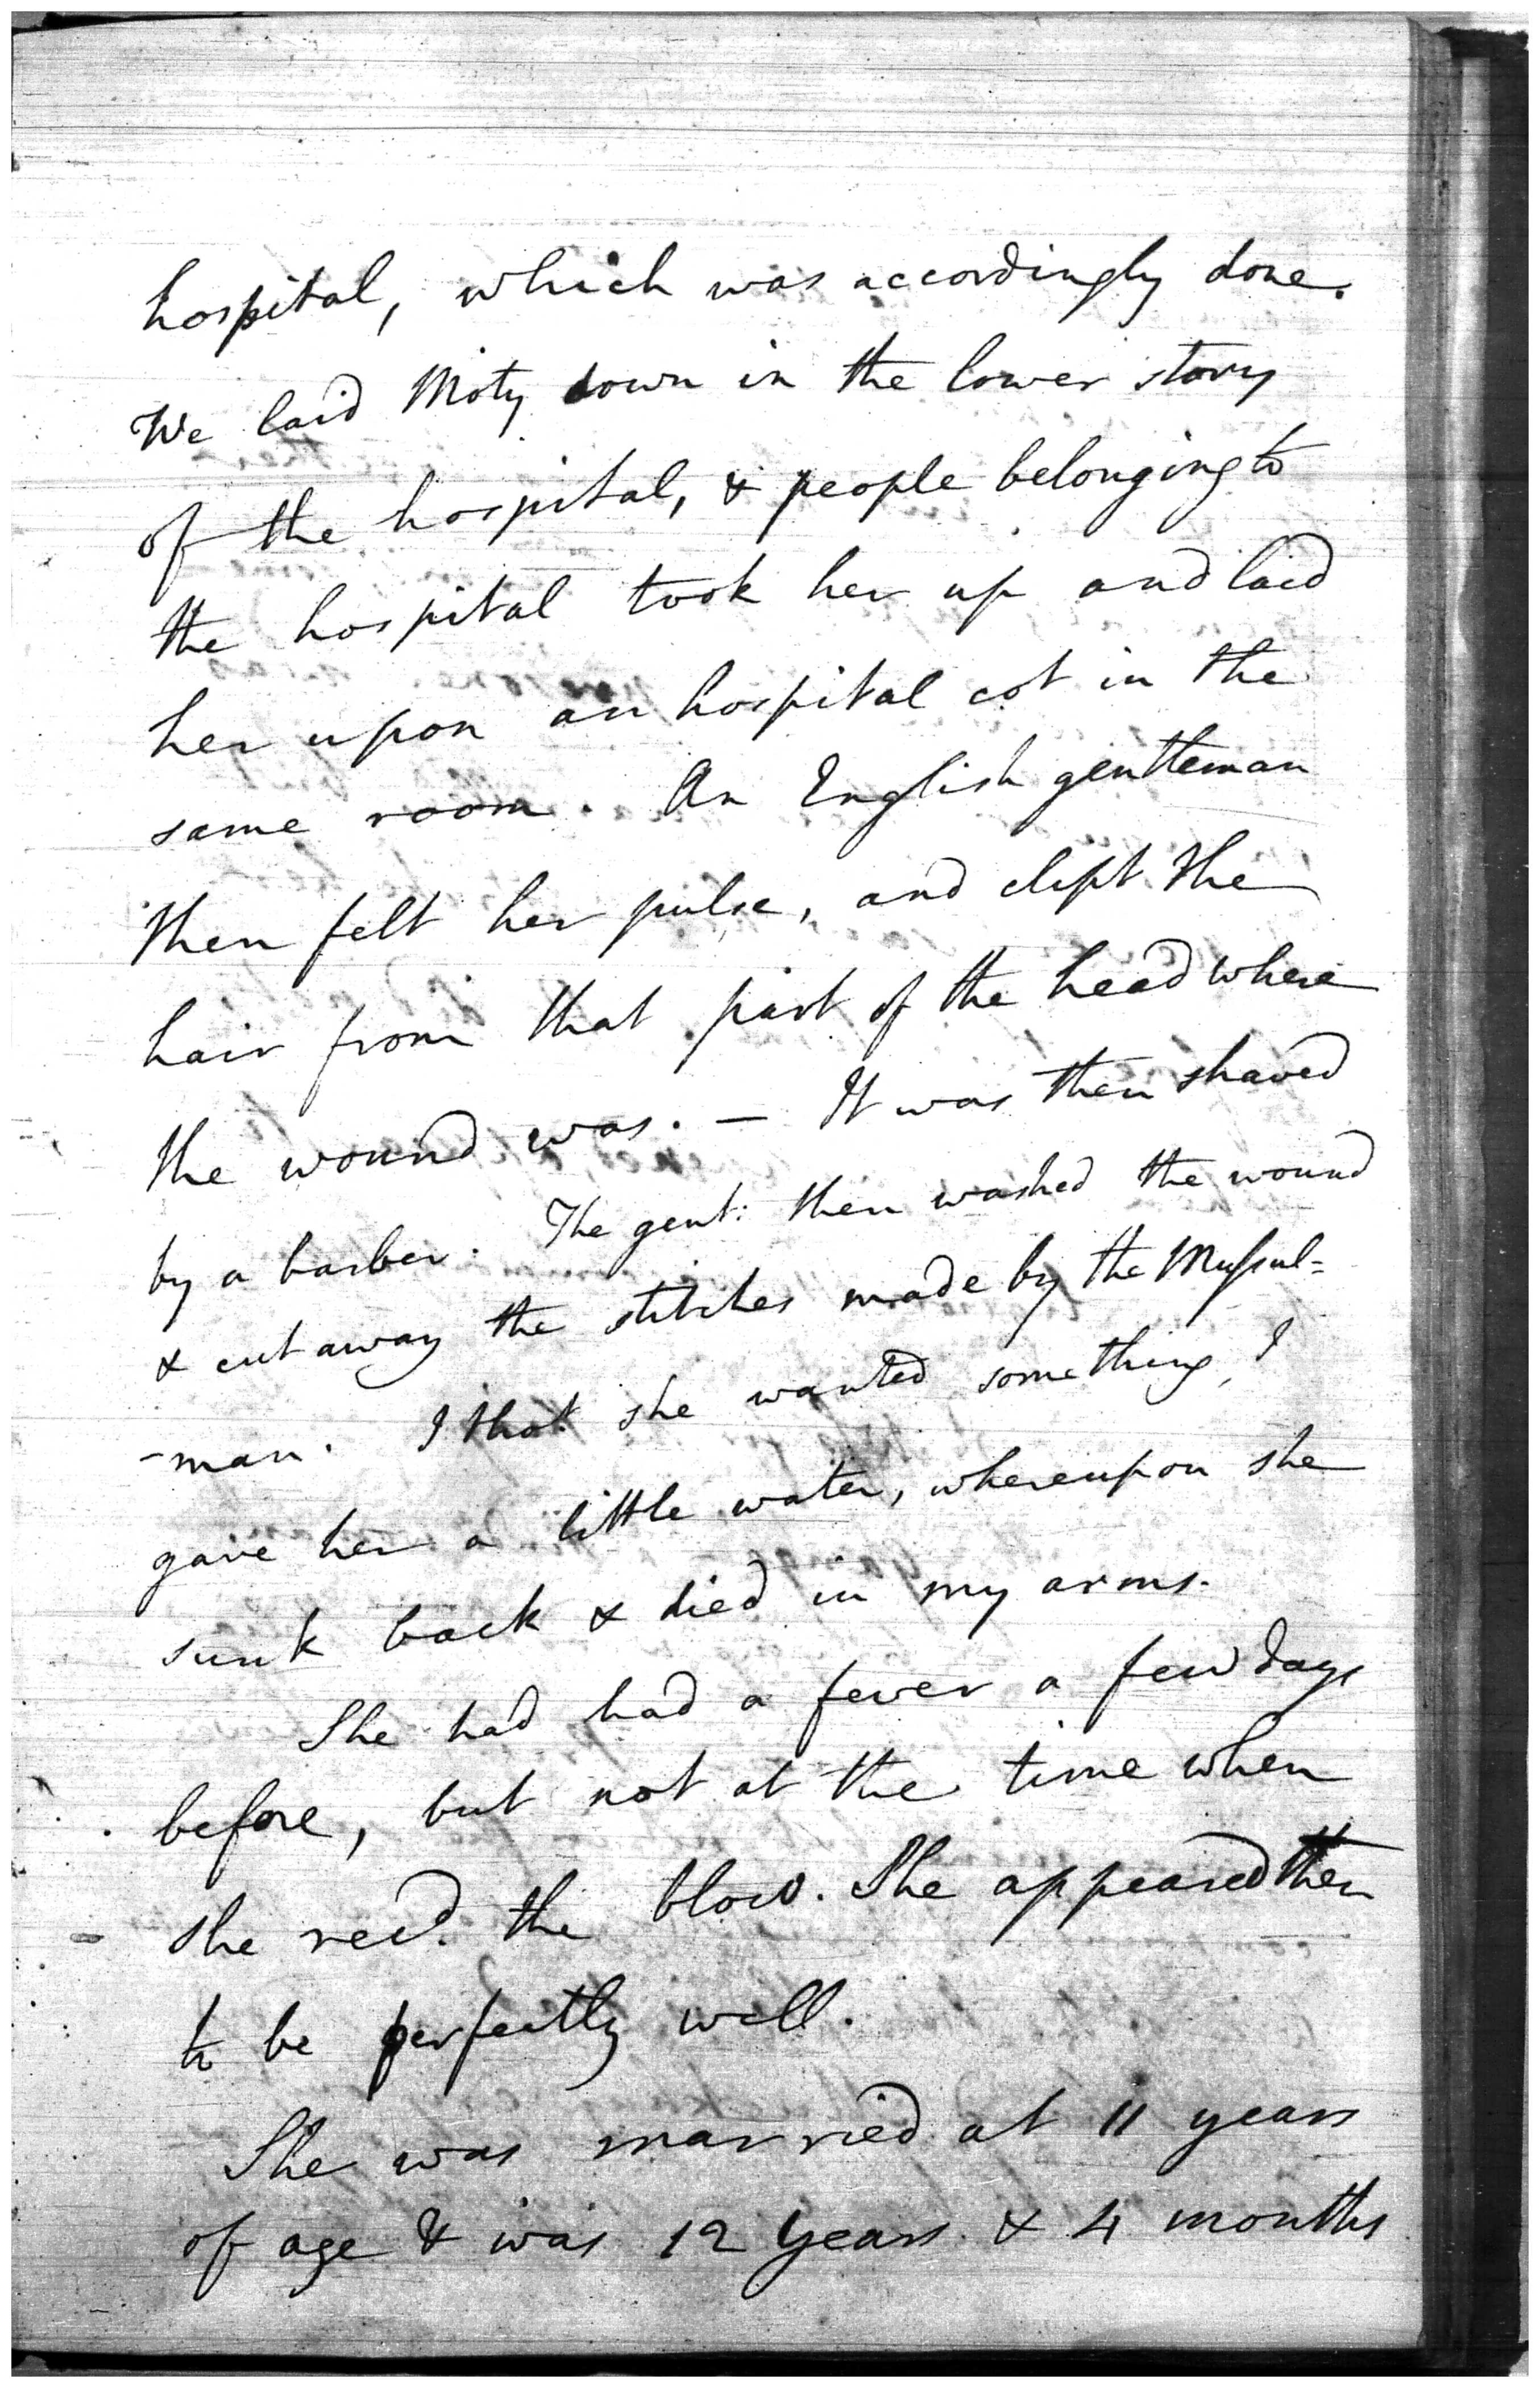 hospital, which was accordingly done.
We laid Moty down in the lower story
of the hospital, & people belonging to
the hospital took her up and laid
her upon an hospital cot in the
same room. An English gentleman
then felt her pulse, and clipt the
hair from that part of the head where
the wound was. — It was then shaved
by a barber. The gent: then washed the wound
& cut away the stitches made by the Mussul=
-man. I thot she wanted something, I
gave her a little water, whereupon she
sunk back & died in my arms.
She had had a fever a few days
before, but not at the time when
she recd. the blow. She appeared then
to be perfectly well.
She was married at 11 years
of age & was 12 years & 4 months